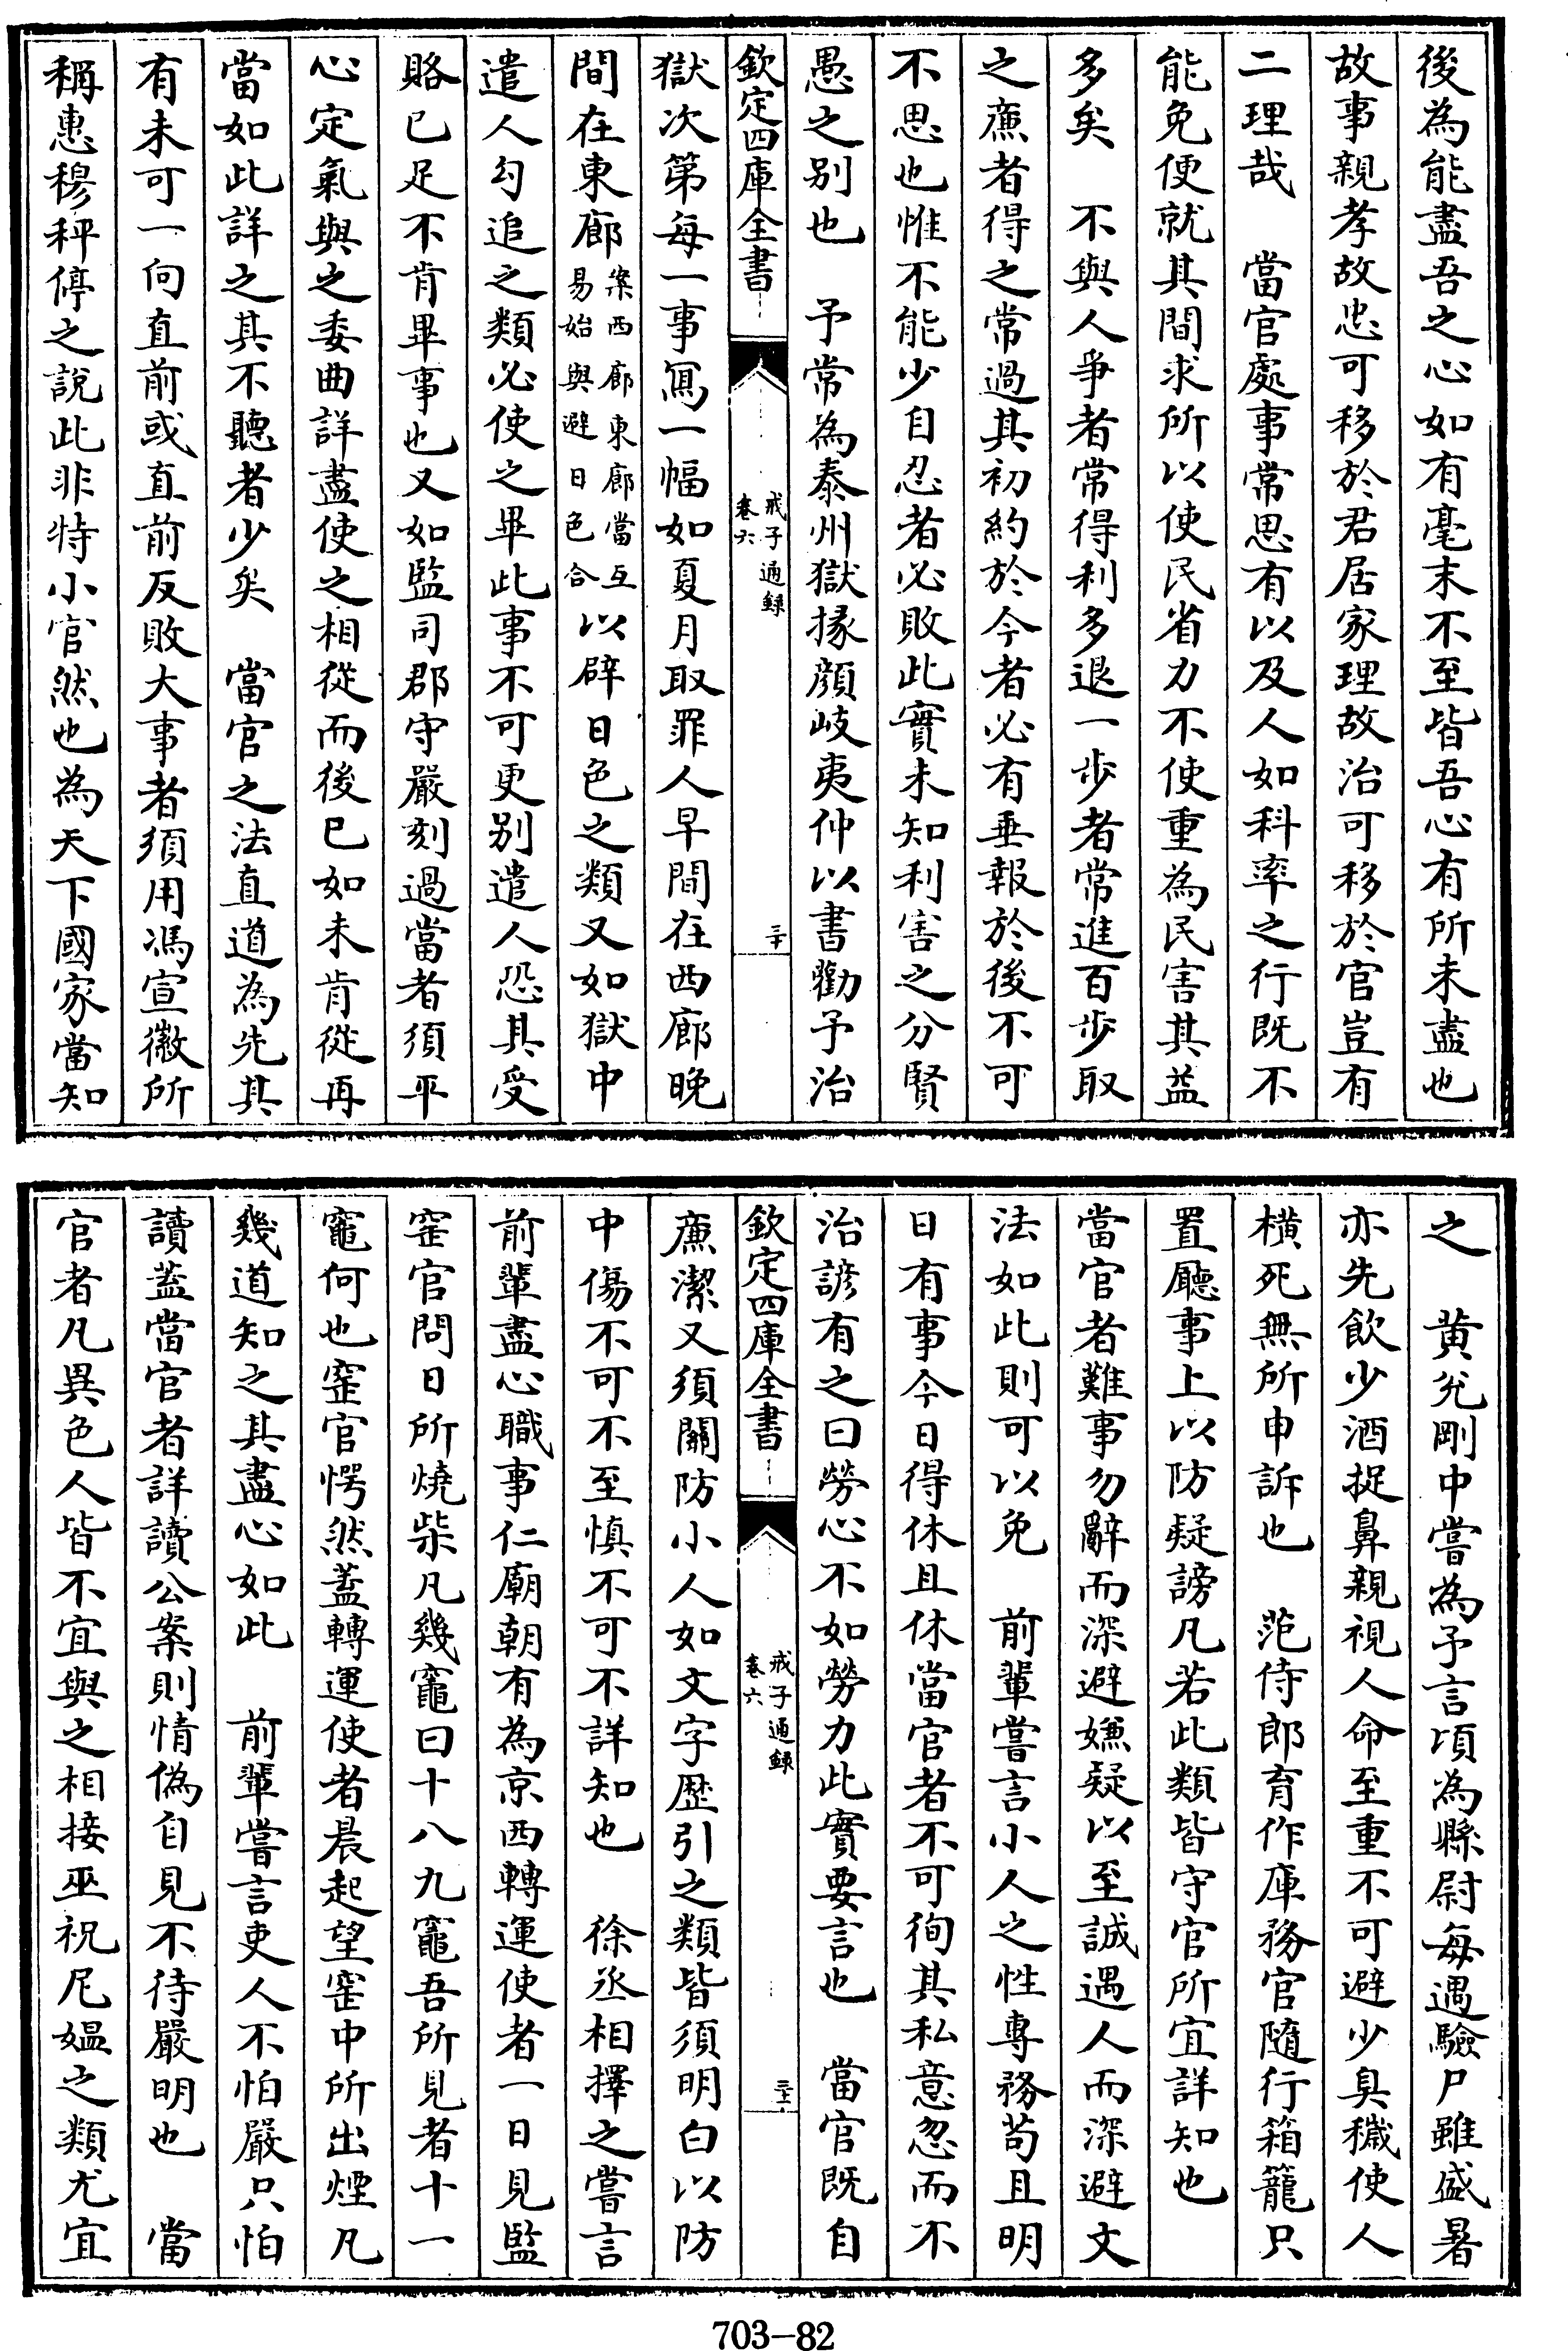 後為能盡吾之心如有毫末不至皆吾心有所未盡也
故事親孝故忠可移於君居家理故治可移於官豈有
二理哉　當官處事常思有以及人如科率之行既不
能免便就其間求所以使民省力不使重為民害其益
多矣　不與人爭者常得利多退一步者常進百步取
之廉者得之常過其初約於今者必有垂報於後不可
不思也惟不能少自忍者必敗此實未知利害之分賢
愚之別也　予常為泰州獄掾顔岐夷仲以書勸予治
欽定四庫全書
戒子通録
卷六
三十
獄次第每一事寫一幅如夏月取罪人早間在西廊晚
間在東廊案西廊東廊當互易始與避日色合以辟日色之類又如獄中
遣人勾追之類必使之畢此事不可更别遣人恐其受
賂已足不肯畢事也又如監司郡守嚴刻過當者須平
心定氣與之委曲詳盡使之相從而後已如未肯從再
當如此詳之其不聽者少矣　當官之法直道為先其
有未可一向直前或直前反敗大事者須用馮宣徽所
稱惠穆秤停之說此非特小官然也為天下國家當知
之　黄兊剛中嘗為予言頃為縣尉每遇驗尸雖盛暑
亦先飲少酒捉鼻親視人命至重不可避少臭穢使人
横死無所申訴也　范侍郎育作庫務官隨行箱籠只
置廳事上以防疑謗凡若此類皆守官所宜詳知也
當官者難事勿辭而深避嫌疑以至誠遇人而深避文
法如此則可以免　前輩嘗言小人之性專務苟且明
日有事今日得休且休當官者不可徇其私意忽而不
治諺有之曰勞心不如勞力此實要言也　當官既自
欽定四庫全書
戒子通録
卷六
三十一
廉潔又須關防小人如文字歴引之類皆須明白以防
中傷不可不至慎不可不詳知也　徐丞相擇之嘗言
前輩盡心職事仁廟朝有為京西轉運使者一日見監
窑官問日所燒柴凡幾竈曰十八九竈吾所見者十一
竈何也窑官愕然蓋轉運使者晨起望窑中所出煙凡
幾道知之其盡心如此　前輩嘗言吏人不怕嚴只怕
讀蓋當官者詳讀公案則情偽自見不待嚴明也　當
官者凡異色人皆不宜與之相接巫祝尼媪之類尤宜
703-82